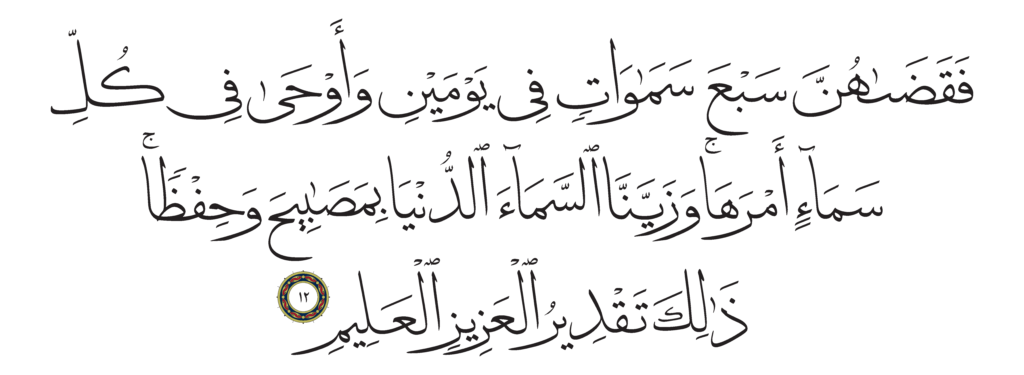 فَقَضَىٰهُنَّ سَبْعَ سَمَـٰوَاتٍ فِى يَوْمَيْنِ وَأَوْحَىٰ فِى كُلِّ
سَمَآءٍ أَمْرَهَا ۚ وَزَيَّنَّا ٱلسَّمَآءَ ٱلدُّنْيَا بِمَصَـٰبِيحَ وَحِفْظًا ۚ
ذَٰلِكَ تَقْدِيرُ ٱلْعَزِيزِ ٱلْعَلِيمِ ١٢